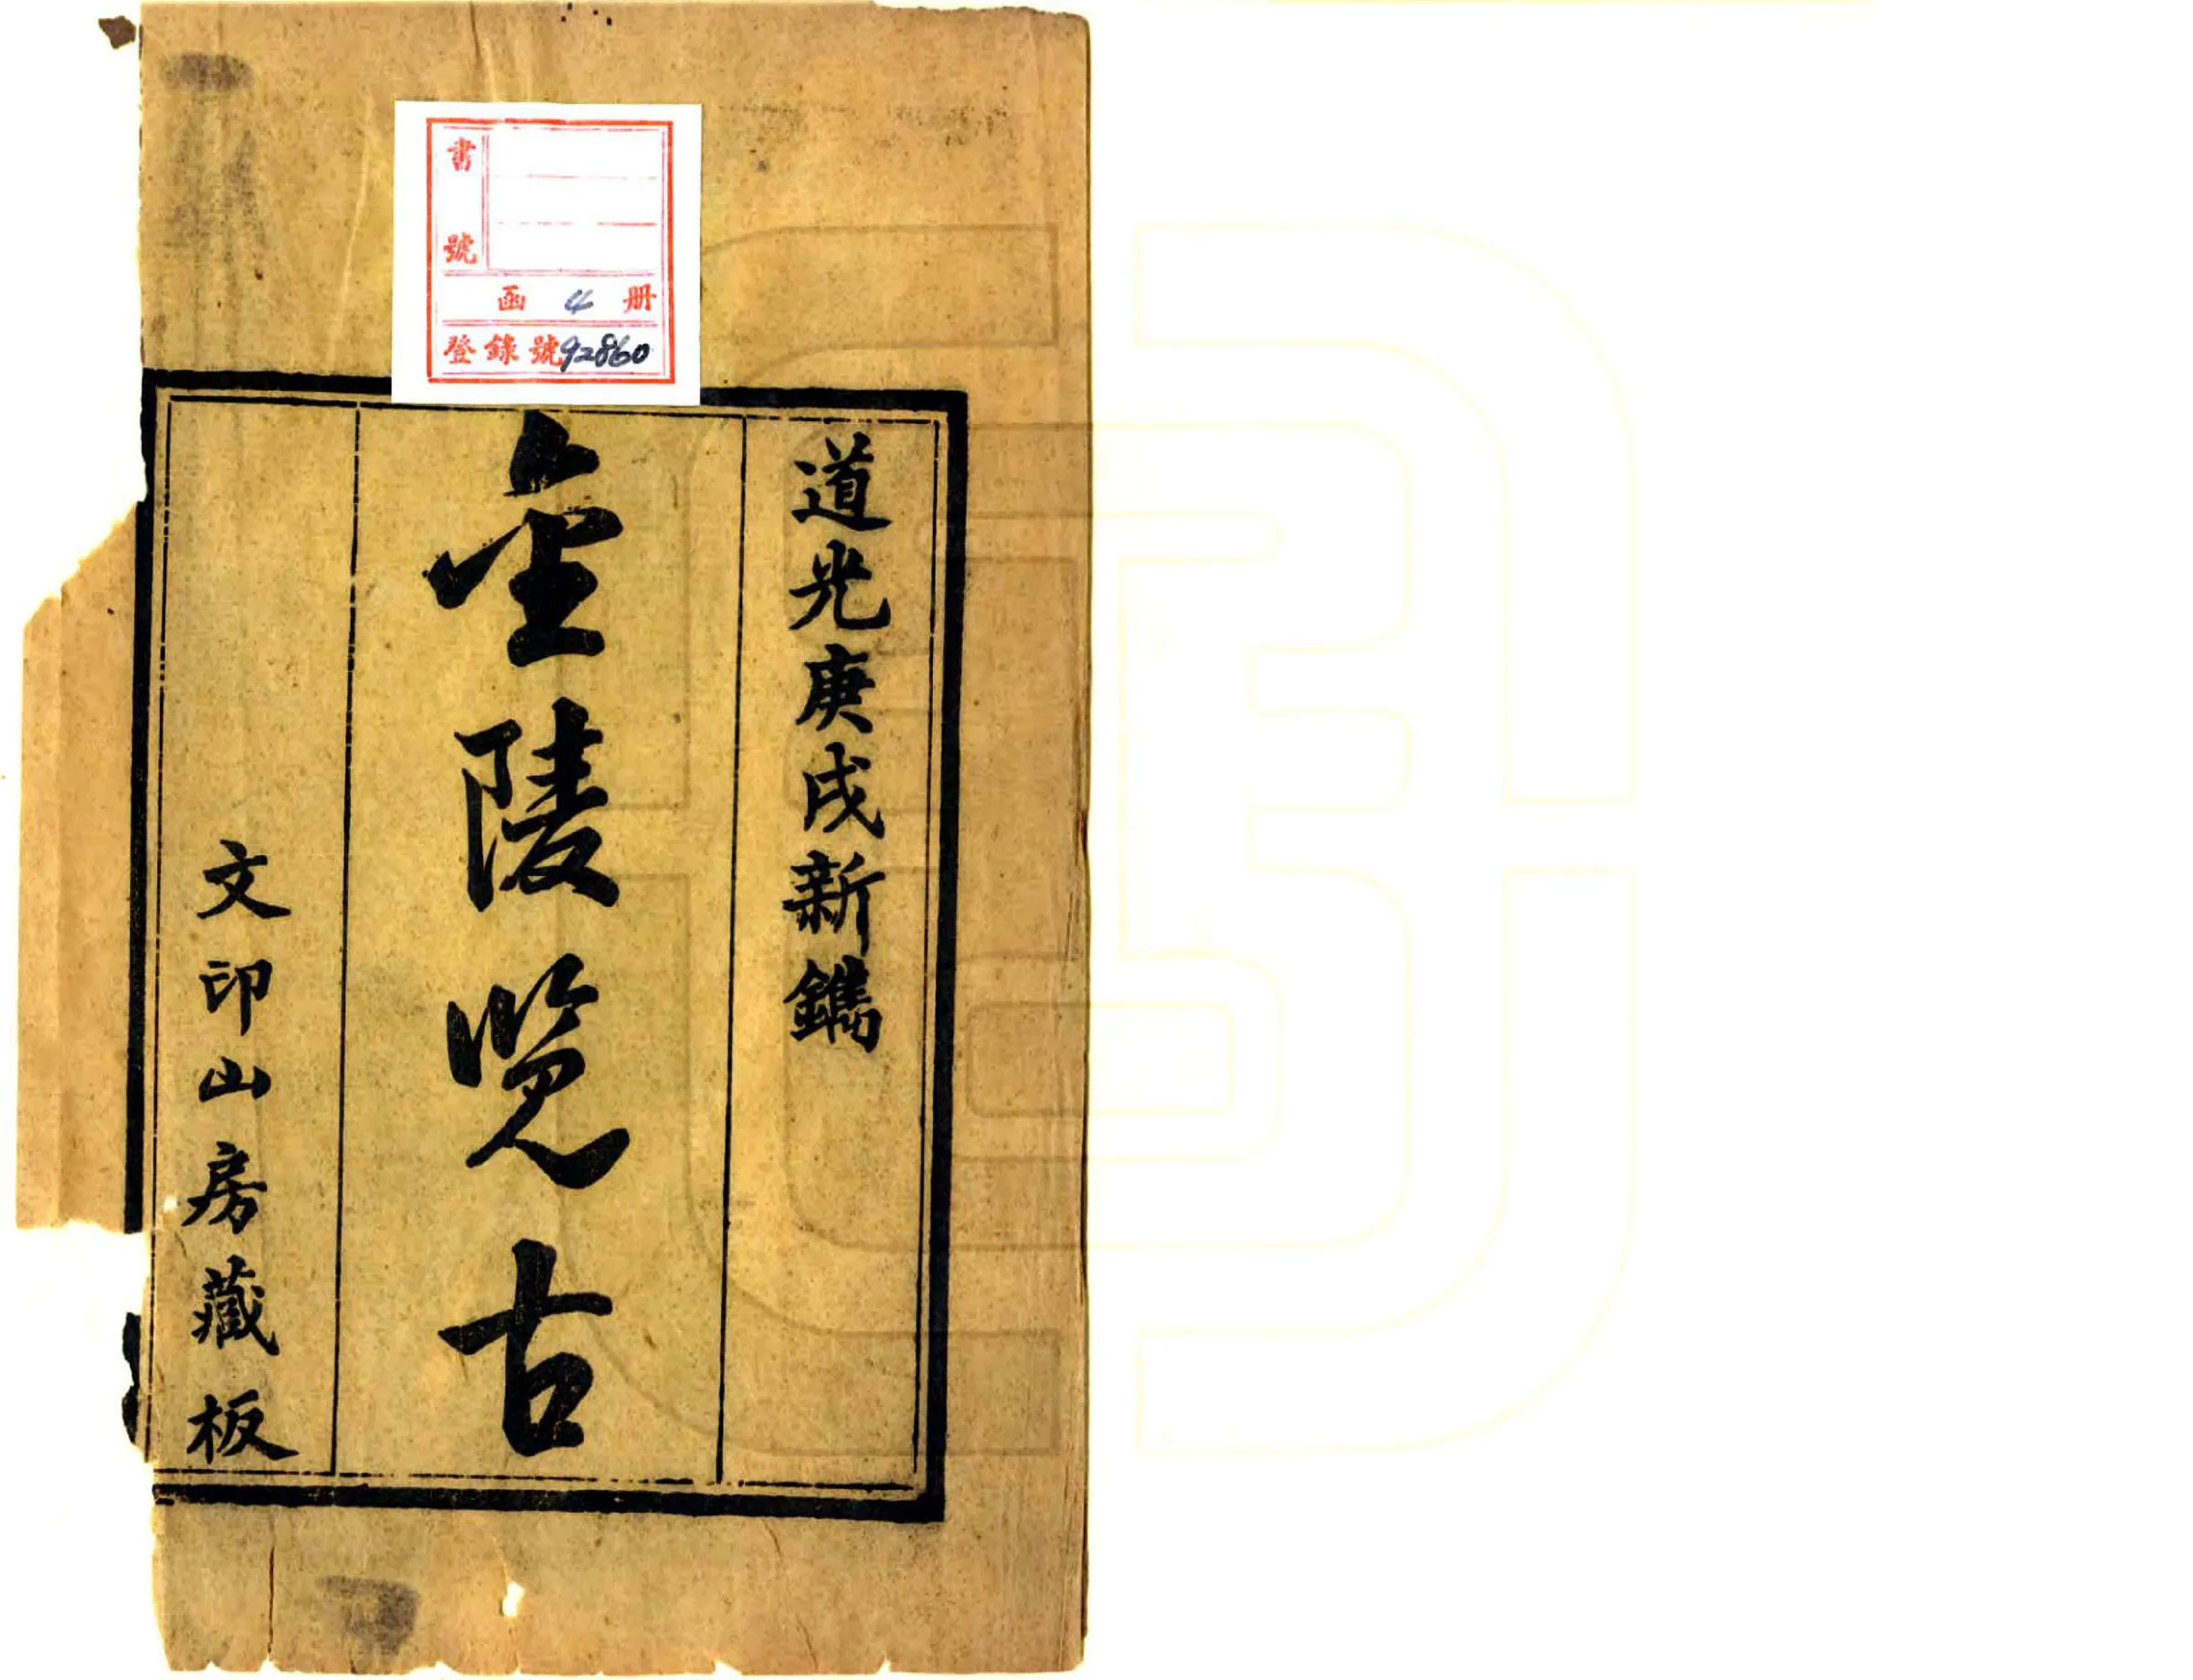 書號
函 4 册
登錄號92860
道光庚戌新鐫
金陵覽古
文印山房藏板